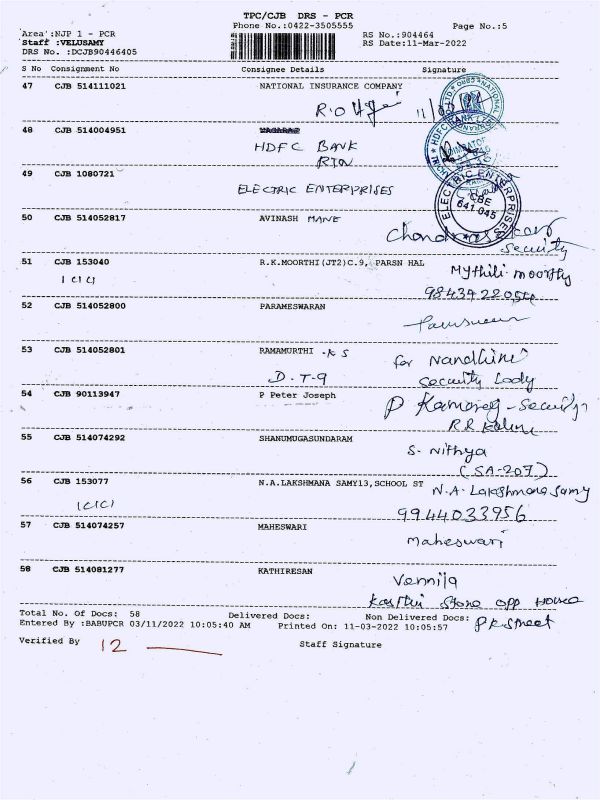 TPC/CJB DRS - PCR
Phone No.:0422-3505555 Page No.:5
Area :NJP 1 - PCR RS No.:904464
Staff :VELUSAMY RS Date:11-Mar-2022
DRS No. :DCJB90446405
S No Consignment No Consignee Details Signature
47 CJB 514111021 NATIONAL INSURANCE COMPANY
48 CJB 514004951
HDFC BANK
RTN
49 CJB 1080721
ELECTRIC ENTERPRISES
ELECTRIC ENTERPRISES
CBE
641 045
50 CJB 514052817 AVINASH MANE
Security
51 CJB 153040 R.K.MOORTHI(JT2)C.9, PARSN HAL
ICICI Mythili moorthy
9843422054
52 CJB 514052800 PARAMESWARAN
53 CJB 514052801 RAMAMURTHI -K S for Nandhini
D-T-9 Security Lady
54 CJB 90113947 P Peter Joseph
55 CJB 514074292 SHANUMUGASUNDARAM
S. Nithya
(SA-207)
56 CJB 153077 N.A.LAKSHMANA SAMY13,SCHOOL ST
N.A. Lakshmana Samy
ICICI 9944033956
57 CJB 514074257 MAHESWARI
Maheswari
58 CJB 514081277 KATHIRESAN
Vennila
Stone opp House
Total No. Of Docs: 58 Delivered Docs: Non Delivered Docs: P K Street
Entered By :BABUPCR 03/11/2022 10:05:40 AM Printed On: 11-03-2022 10:05:57
Verified By 12 Staff Signature